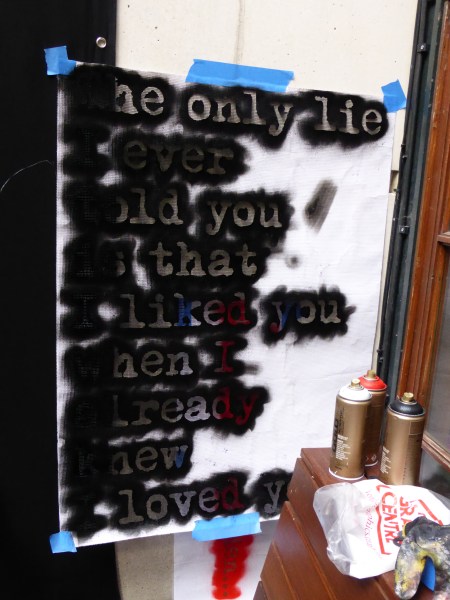 The only lie
I ever
told you
is that
I liked you
when I
already
knew
I loved y
CENTRE